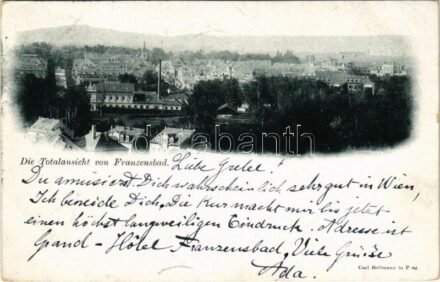 Die Totalansicht von Franzensbad.
Liebe Gretel!
Du amüsierst Dich wahrscheinlich sehr gut in Wien,
Ich beneide Dich, Die Kur macht mir bis jetzt
einen höchst langweiligen Eindruck. Adresse ist
Grand-Hôtel Franzensbad, Viele Grüsse
Ada.
Carl Bellmann in Prag
darabanth